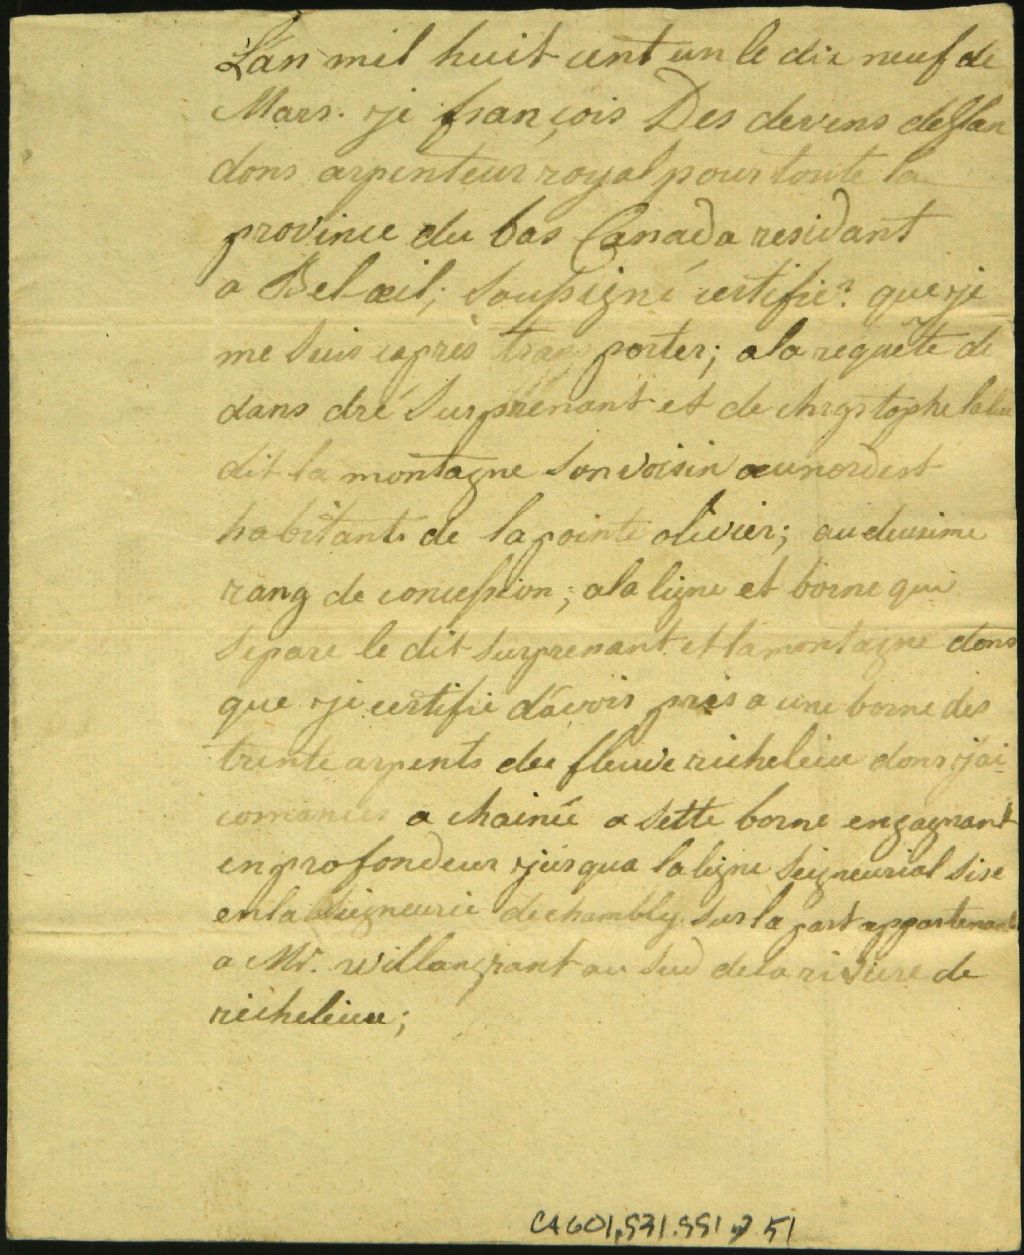 L'an mil huit cent un le dix neuf de
Mars. je françois Des devens deglan
dons arpenteur royal pour toute la
province du bas Canada residant
a Belœil; Soussigné certifié? que je
me suis expres transporter; a la requête de
dans dré Surprenant et de chrystophe
dit la montagne son voisin au nordest
habitants de la pointe olivier; au deusieme
rang de concession; a la ligne et borne qui
separe le dit surprenant et lamontagne dons
que je certifie d'avoir pris a une borne des
trente arpents du fleuve richelieu dons j'ai
comancer a chainée a sette borne engagnant
enprofondeur jusqua la ligne seigneurial sise
en la Seigneurie de chambly sur la part appartenant
a Mr. willangrant au sud de la riviere de
richelieu;
CA601,S31.SS1,D51